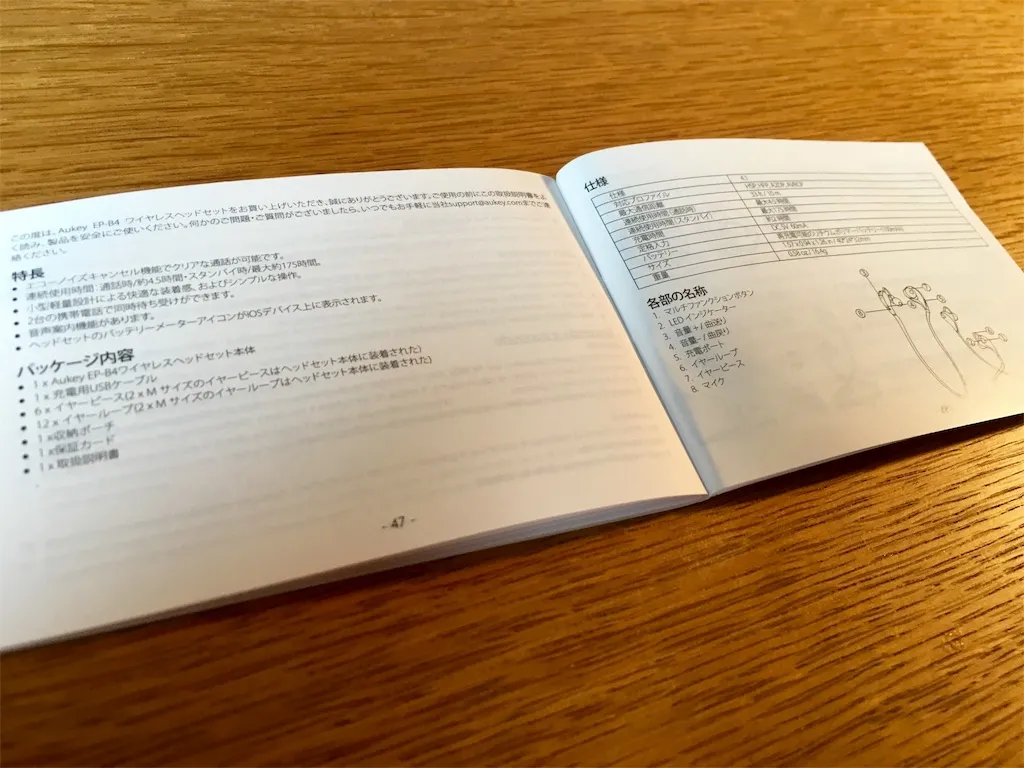 この度は、Aukey EP-B4 ワイヤレスヘッドセットをお買い上げいただき、誠にありがとうございます。ご使用の前にこの取扱説明書をよ
く読み、製品を安全にご使いください。何かのご問題・ご質問がございましたら、いつでもお手軽に当社support@aukey.comまでご連
絡ください。
特長
• エコー・ノイズキャンセル機能でクリアな通話が可能です。
• 連続使用時間：通話時/約4.5時間・スタンバイ時/最大約175時間。
• 小型軽量設計による快適な装着感、およびシンプルな操作。
• 2台の携帯電話で同時待ち受けができます。
• 音声案内機能があります。
• ヘッドセットのバッテリーメーターアイコンがiOSデバイス上に表示されます。
パッケージ内容
• 1 x Aukey EP-B4ワイヤレスヘッドセット本体
• 1 x 充電用USBケーブル
• 6 x イヤーピース(2 x M サイズのイヤーピースはヘッドセット本体に装着された)
• 12 x イヤーループ(2 x M サイズのイヤーループはヘッドセット本体に装着された)
• 1 x収納ポーチ
• 1 x保証カード
• 1 x 取扱説明書
- 47 -
仕様
仕様 4.1
対応プロファイル HSP, HFP, A2DP, AVRCP
最大通信距離 33 ft / 10 m
連続使用時間（通話時）
連続使用時間（スタンバイ）
充電時間
定格入力 DC 5V
バッテリー
サイズ
重量 0.58 oz / 16.4g
各部の名称
1. マルチファンクションボタン
2. LEDインジケーター
3. 音量 + / 曲送り
4. 音量 - / 曲戻り
5. 充電ポート
6. イヤーループ
7. イヤーピース
8. マイク